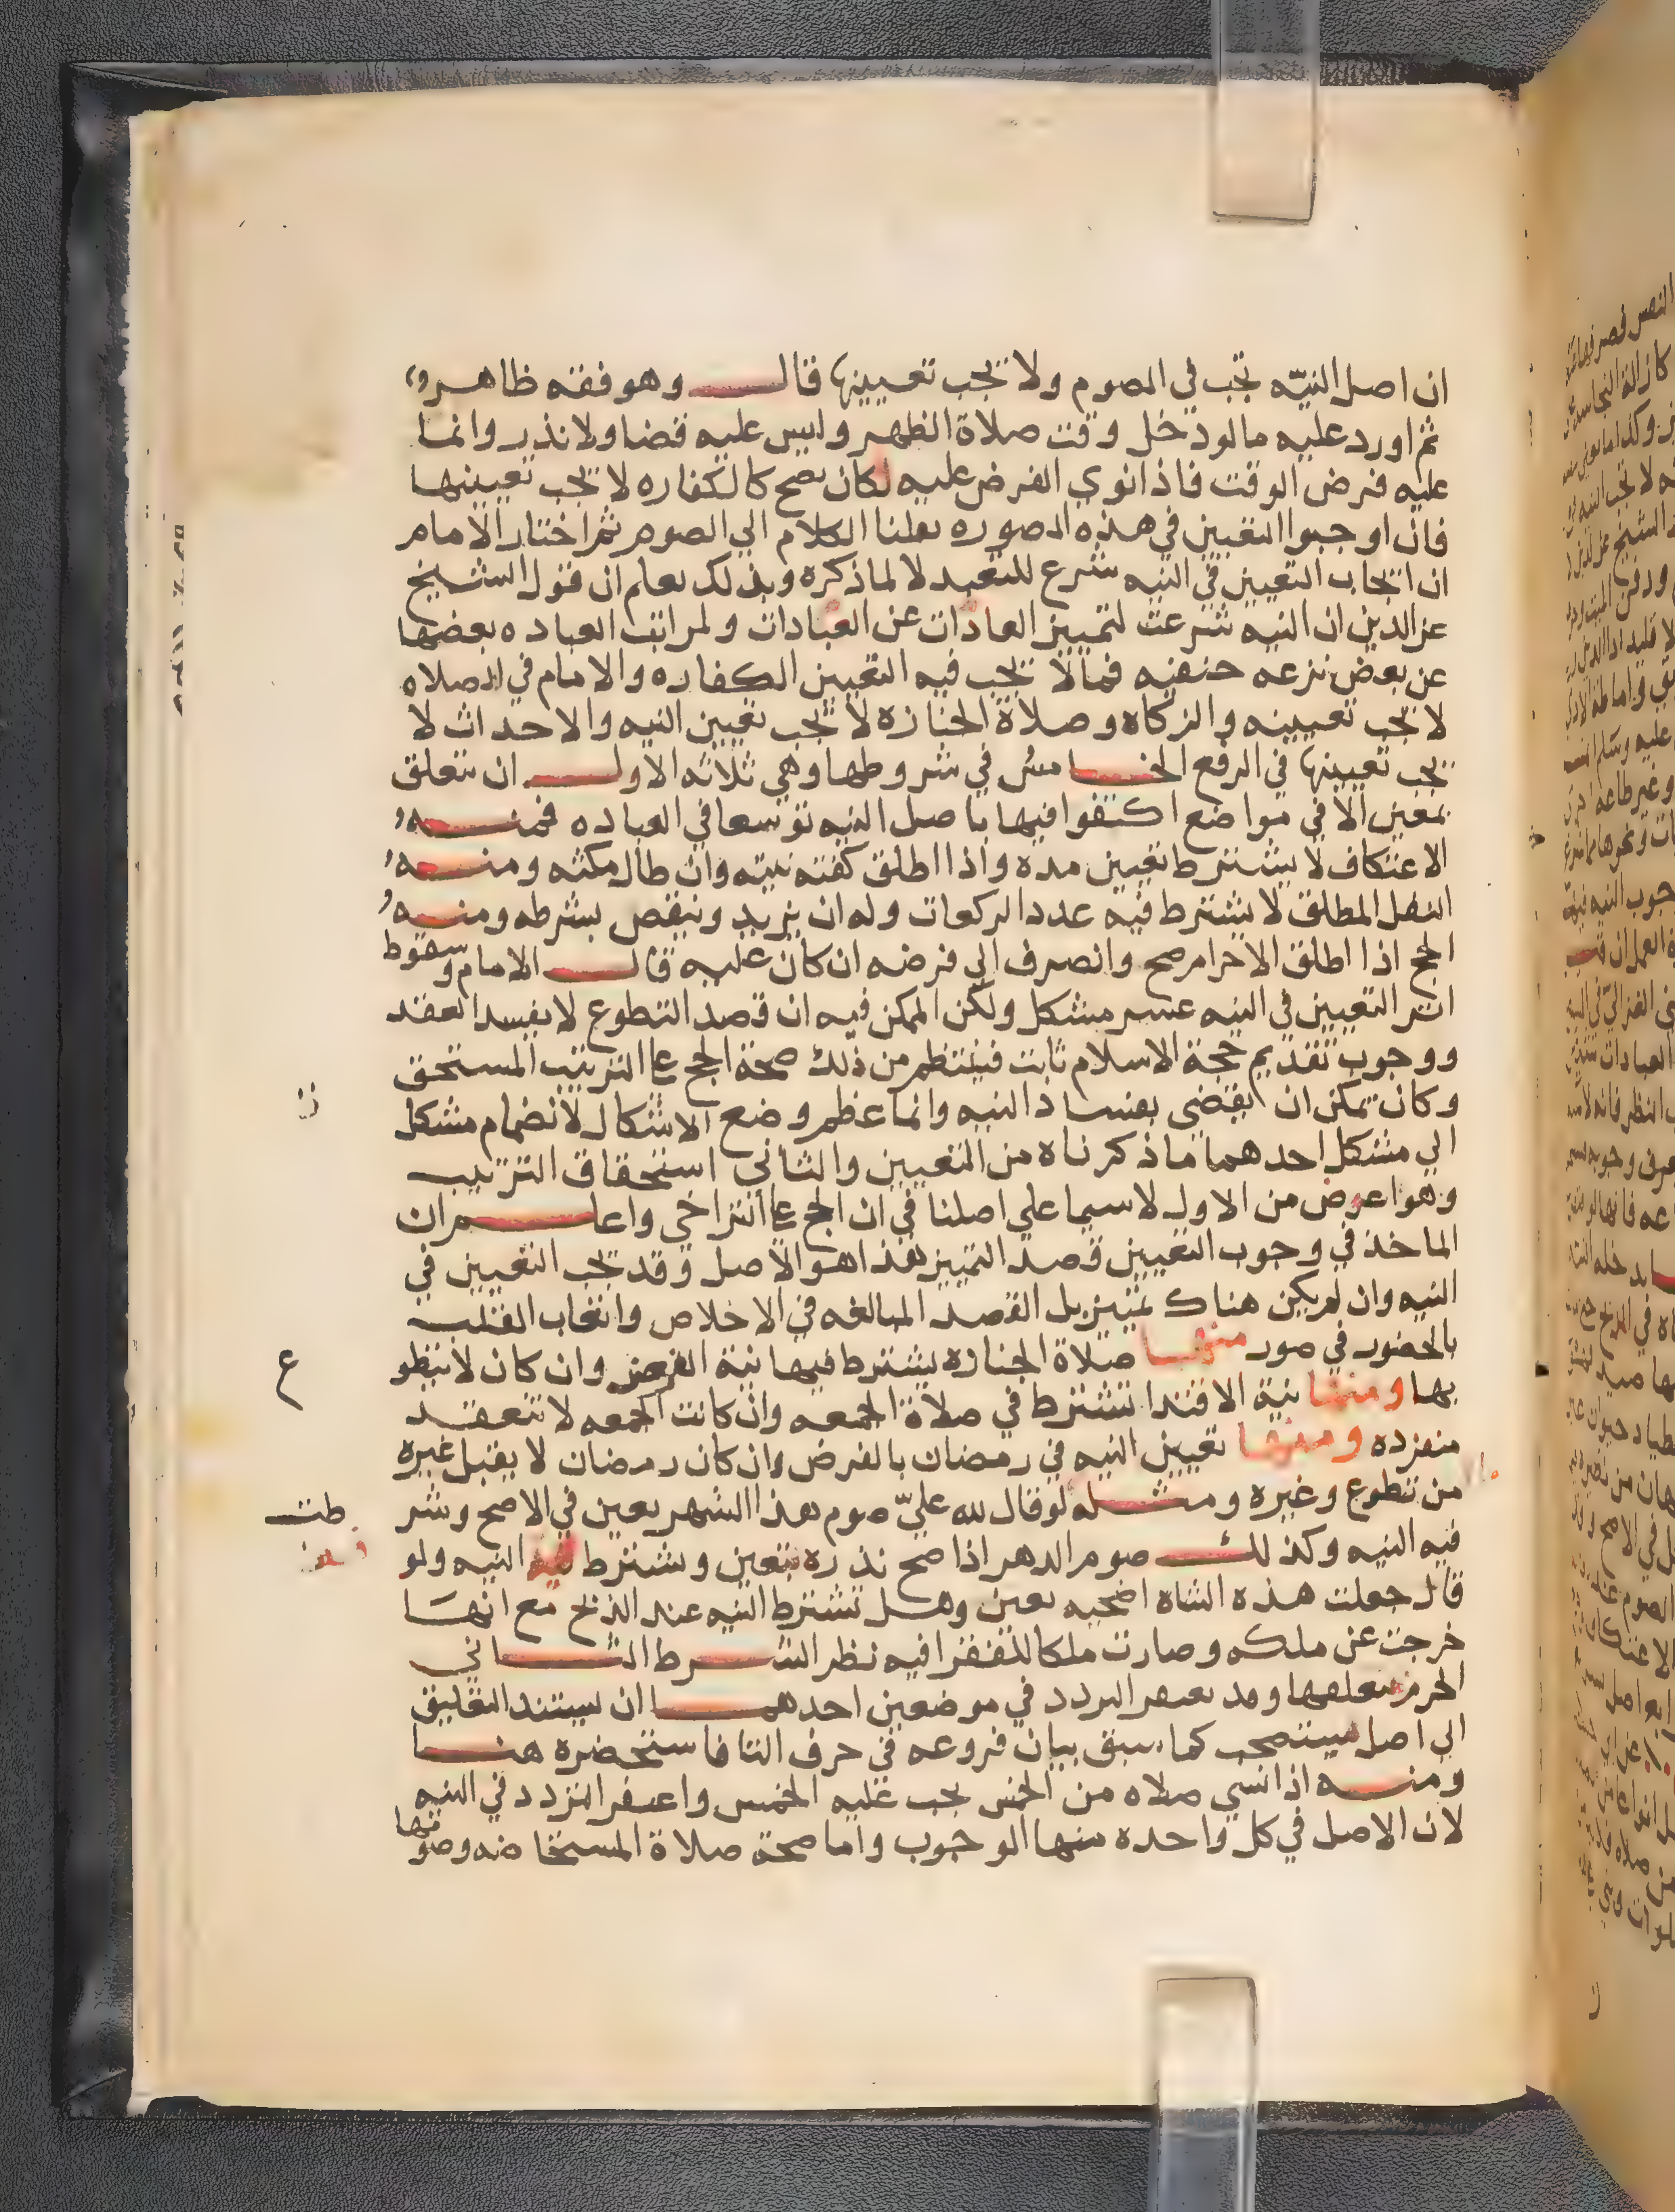 ان اصل النيّه تجب في الصوم ولا تجب تعيينها قال وهو فقه ظاهر
ثم اورد عليه ما لو دخل وقت صلاة الظهر وليس عليه قضا ولا نذر وانما
عليه فرض الوقت فاذا نوي الفرض عليه لكان يصح كالكفاره لا يجب تعيينها
فان اوجبوا التعيين في هذه الصوره نقلنا الكلام الي الصوم ثم اختار الامام
ان ايجاب التعيين في النيه شرع للتعبد لا لما ذكره وبذلك يعلم ان قول الشيخ
عز الدين ان النيه شرعت لتمييز العادات عن العبادات ولمراتب العباده بعضها
عن بعض نزعه حنفيه فما لا يجب فيه التعيين الكفاره والامام في الصلاه
لا يجب تعيينه والزكاه وصلاة الجنازه لا يجب تعيين النيه والاحداث لا
يجب تعيينها في الرفع الخامس في شروطها وهي ثلاثه الاول ان تتعلق
بمعين الا في مواضع اكتفوا فيها باصل النيه توسعا في العباده فمنه
الاعتكاف لا يشترط تعيين مده واذا اطلق كفته نيته وان طال مكثه ومنه
النفل المطلق لا يشترط فيه عدد الركعات وله ان يزيد وينقص بشرطه ومنه
الحج اذا اطلق الاحرام صح وانصرف الي فرضه ان كان عليه قال الامام وسقوط
اثر التعيين في النيه عسر مشكل ولكن الممكن فيه ان قصد التطوع لا يفسد العقد
ووجوب تقديم حجة الاسلام ثابت فينتظم من ذلك صحة الحج علي الترتيب المستحق
وكان يمكن ان يقضي بفساد النيه وانما عظم وضع الاشكال لانضمام مشكل
الي مشكل احدهما ما ذكرناه من التعيين والثاني استحقاق الترتيب
وهو اعوض من الاول لا سيما علي اصلنا في ان الحج علي التراخي واعلم ان
الماخذ في وجوب التعيين قصد التمييز هذا هو الاصل وقد تجب التعيين في
النيه وان لم يكن هناك تمييز بل القصد المبالغه في الاخلاص وانتخاب القلب
بالحضور في صور منها صلاة الجنازه يشترط فيها نية الفرض وان كان لا يتطو
ع
بها ومنها نية الاقتدا تشترط في صلاة الجمعه وان كانت الجمعه لا تنعقد
منفرده ومنها تعيين النيه في رمضان بالفرض وان كان رمضان لا يقبل غيره
من تطوع وغيره ومثله لو قال لله عليّ صوم هذا الشهر يعين في الاصح وتشر
طت
فيه النيه وكذلك صوم الدهر اذا صح نذره يتعين ويشترط فيه النيه ولو
قال جعلت هذه الشاه اضحيه يعين وهل تشترط النيه عند الذبح مع انها
خرجت عن ملكه وصارت ملكا للفقرا فيه نظر الشرط الثاني
الجزم بتعلقها وقد يغتفر التردد في موضعين احدهما ان يستند التعليق
الي اصل يستصحب كما سبق بيان فروعه في حرف التا فاستحضره هنا
ومنه اذا نسي صلاه من الخمس يجب عليه الخمس واغتفر التردد في النيه
لان الاصل في كل واحده منها الوجوب واما صحة صلاة المستحاضه وصومها